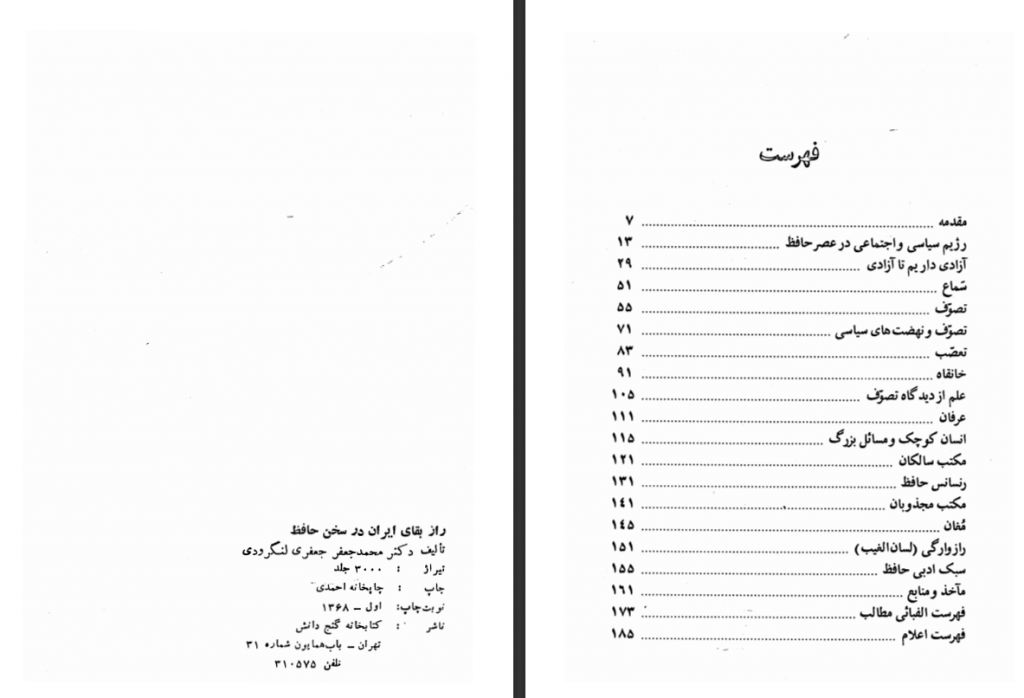 راز بقای ایران در سخن حافظ
تألیف دکتر محمدجعفر جعفری لنگرودی
تیراژ : ۳۰۰۰ جلد
چاپ : چاپخانه احمدی
نوبت چاپ: اول – ۱۳۶۸
ناشر : کتابخانه گنج دانش
تهران – باب‌همایون شماره ۳۱
تلفن ۳۱۰۵۷۵
فهرست
مقدمه ........ ۷
رژیم سیاسی و اجتماعی در عصر حافظ ........ ۱۳
آزادی داریم تا آزادی ........ ۲۹
سَماع ........ ۵۱
تصوّف ........ ۵۵
تصوّف و نهضت‌های سیاسی ........ ۷۱
تعصّب ........ ۸۳
خانقاه ........ ۹۱
علم از دیدگاه تصوّف ........ ۱۰۵
عرفان ........ ۱۱۱
انسان کوچک و مسائل بزرگ ........ ۱۱۵
مکتب سالکان ........ ۱۲۱
رنسانس حافظ ........ ۱۳۱
مکتب مجذوبان ........ ۱۴۱
مُغان ........ ۱۴۵
رازوارگی (لسان‌الغیب) ........ ۱۵۱
سبک ادبی حافظ ........ ۱۵۵
مآخذ و منابع ........ ۱۶۱
فهرست الفبائی مطالب ........ ۱۷۳
فهرست اعلام ........ ۱۸۵